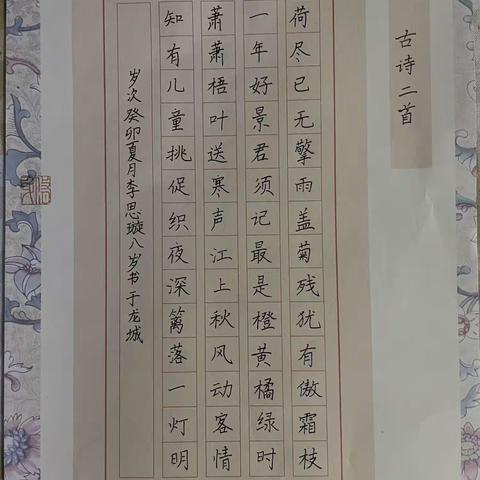 古诗二首
荷尽已无擎雨盖菊残犹有傲霜枝
一年好景君须记最是橙黄橘绿时
萧萧梧叶送寒声江上秋风动客情
知有儿童挑促织夜深篱落一灯明
岁次癸卯夏月李思璇八岁书于龙城